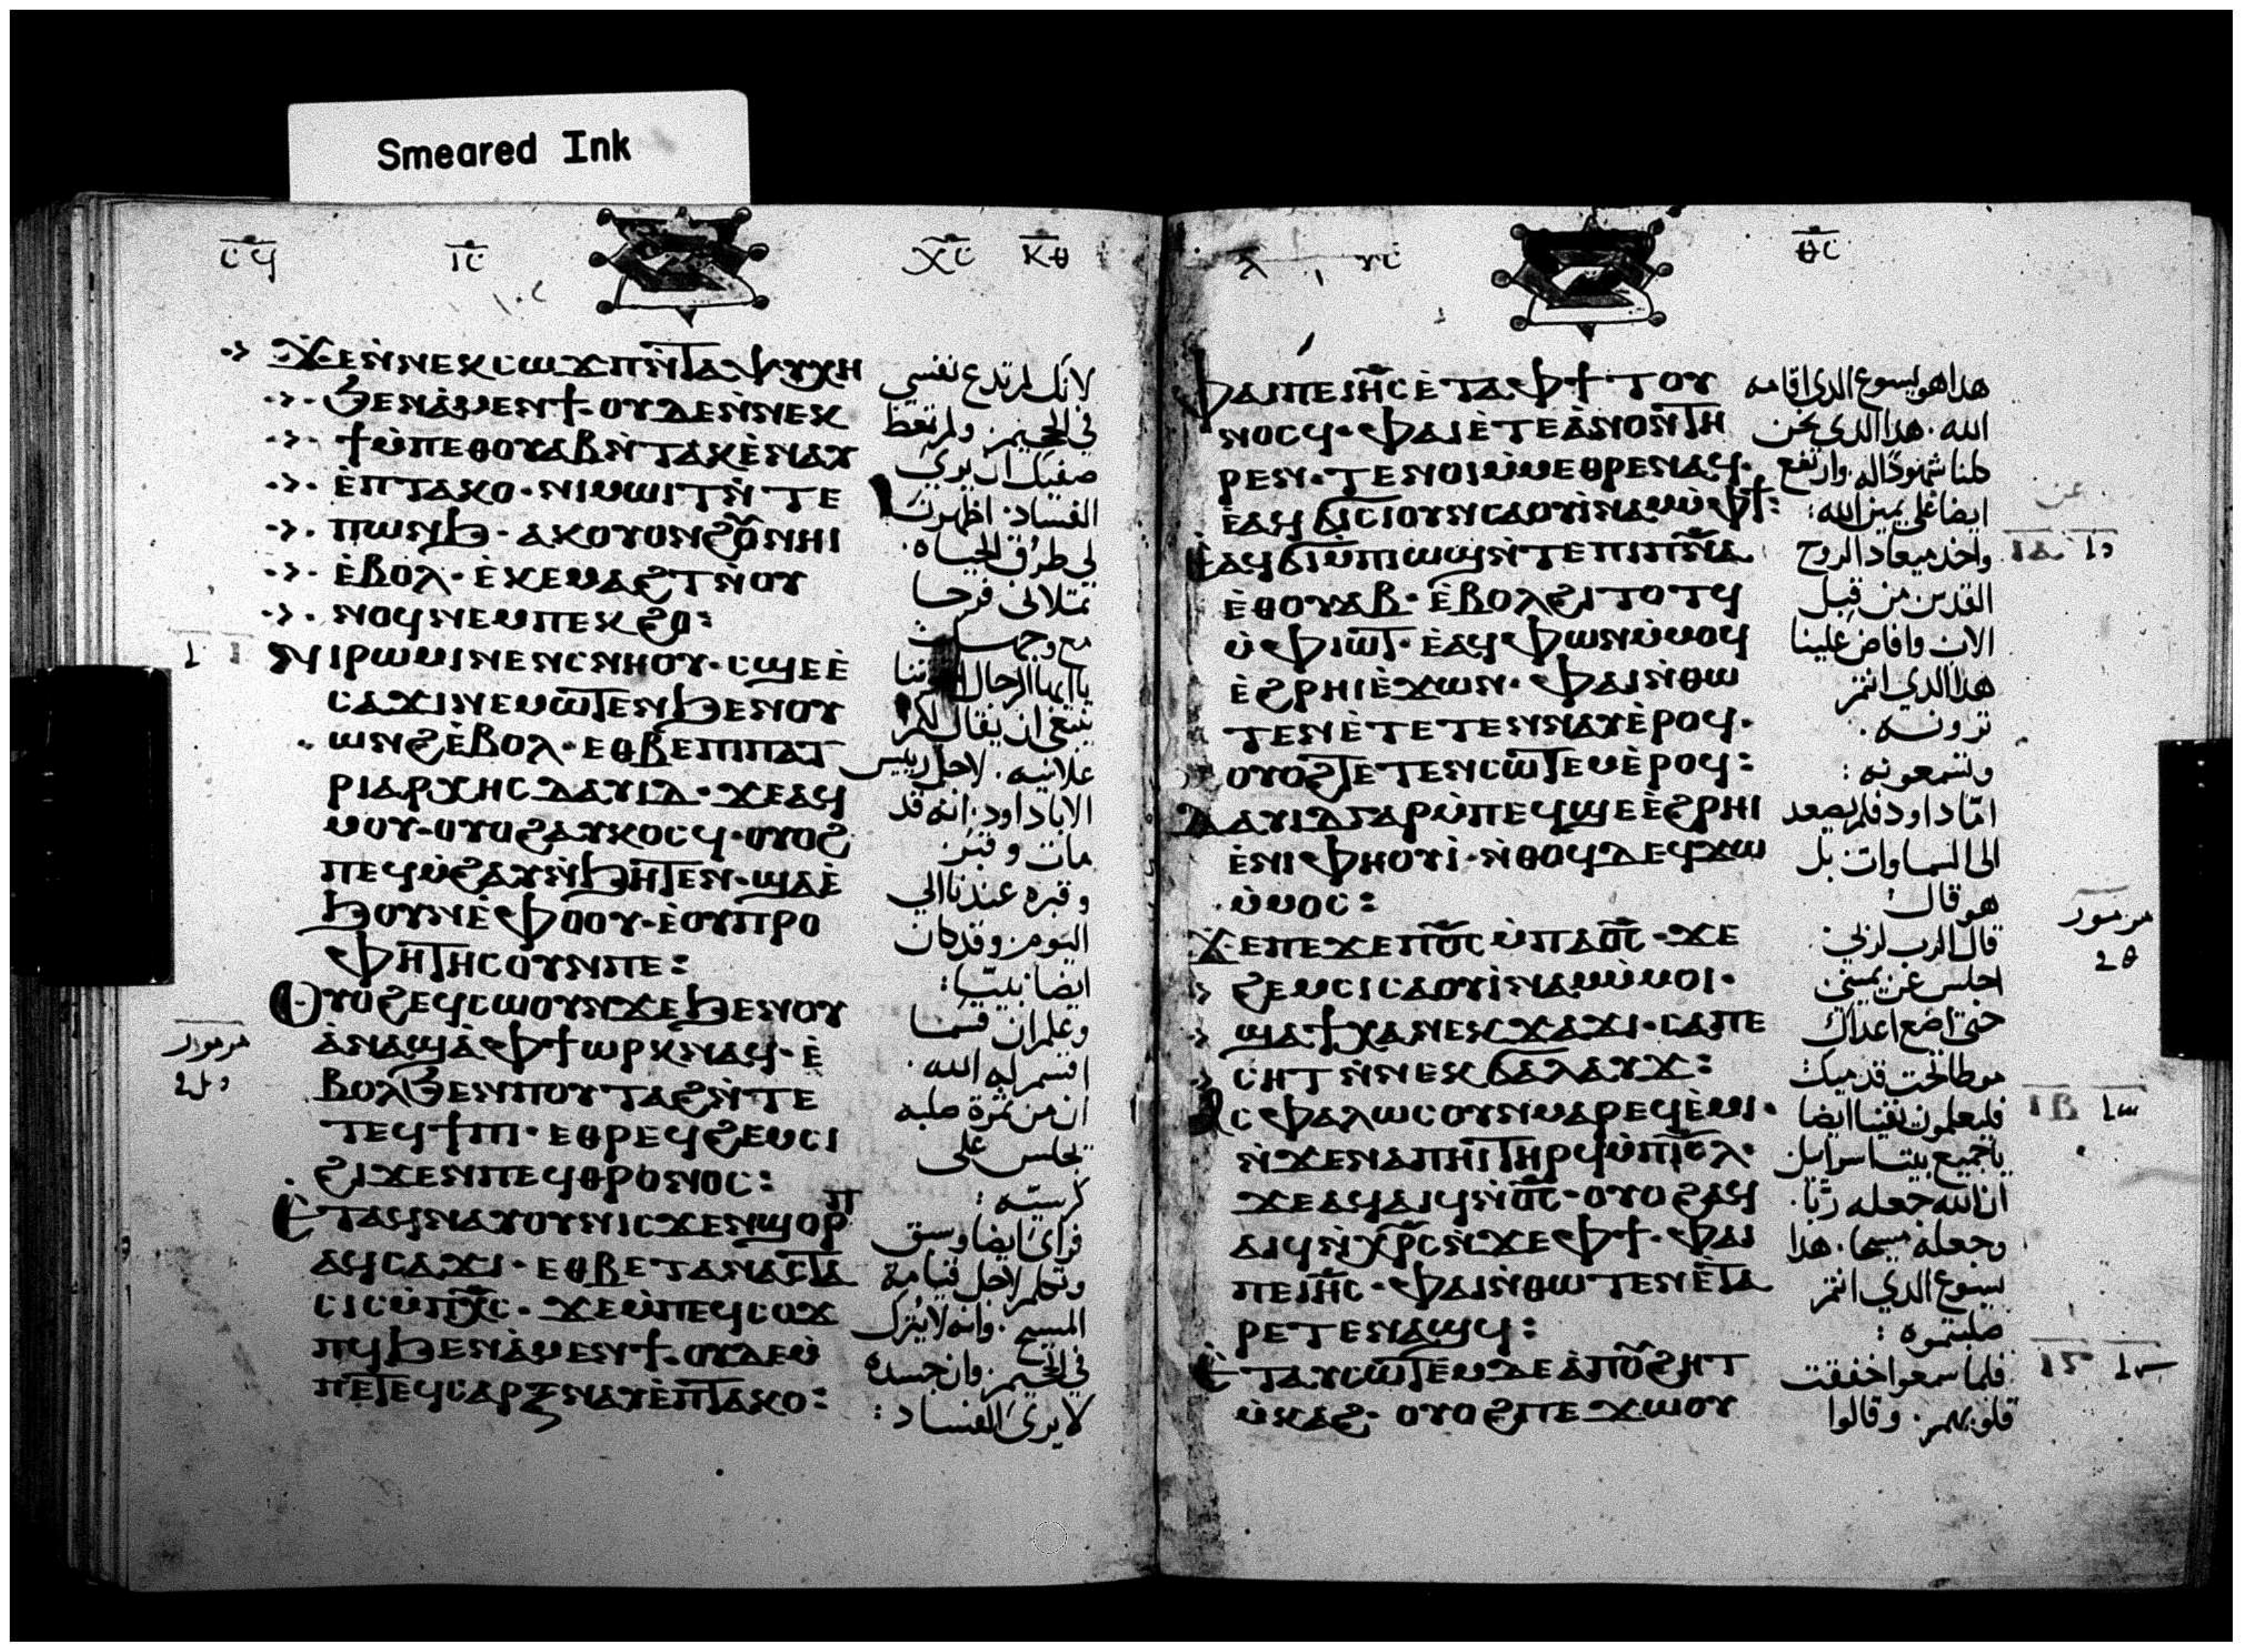 Smeared Ink
ⲥϥ ⲓⲥ ⲭⲥ ⲕⲑ
ϫⲉⲛ̀ⲛⲉⲕⲥⲱϫⲡⲛ̀ⲧⲁⲯⲩⲭⲏ
ϧⲉⲛⲁ̀ⲙⲉⲛϯ·ⲟⲩⲇⲉⲛ̀ⲛⲉⲕ
ϯⲙ̀ⲡⲉⲑⲟⲩⲁⲃⲛ̀ⲧⲁⲕⲉ̀ⲛⲁⲩ
ⲉ̀ⲡⲧⲁⲕⲟ·ⲛⲓⲙⲱⲓⲧⲛ̀ⲧⲉ
ⲡⲱⲛϧ·ⲁⲕⲟⲩⲟⲛϩⲟ̅ⲩⲛⲏⲓ
ⲉ̀ⲃⲟⲗ·ⲉ̀ⲕⲉⲙⲁϩⲧⲛ̀ⲟⲩ
ⲛⲟϥⲛⲉⲙⲡⲉⲕϩⲟ:
ⲛⲓⲣⲱⲙⲓⲛⲉⲛⲥⲛⲏⲟⲩ·ⲥϣⲉⲉ̀
ⲥⲁϫⲓⲛⲉⲙⲱⲧⲉⲛϧⲉⲛⲟⲩ
ⲱⲛϩⲉ̀ⲃⲟⲗ·ⲉⲑⲃⲉⲡⲓⲡⲁⲧ
ⲣⲓⲁⲣⲭⲏⲥⲇⲁⲩⲓⲇ·ϫⲉⲁϥ
ⲙⲟⲩ·ⲟⲩⲟϩⲁⲩⲕⲟⲥϥ·ⲟⲩⲟϩ
ⲡⲉϥⲙ̀ϩⲁⲩⲛ̀ϧⲏⲧⲉⲛ·ϣⲁⲉ̀
ϧⲟⲩⲛⲉ̀ⲫⲟⲟⲩ·ⲉ̀ⲟⲩⲡⲣⲟ
ⲫⲏⲧⲏⲥⲟⲩⲛⲡⲉ:
ⲟⲩⲟϩⲉϥⲥⲱⲟⲩⲛϫⲉϧⲉⲛⲟⲩ
ⲁ̀ⲛⲁϣⲁ̀ⲫϯⲱⲣⲕⲛⲁϥ·ⲉ̀
ⲃⲟⲗϧⲉⲛⲡⲟⲩⲧⲁϩⲛ̀ⲧⲉ
ⲧⲉϥϯⲡⲓ·ⲉⲑⲣⲉϥϩⲉⲙⲥⲓ
ϩⲓϫⲉⲛⲡⲉϥⲑⲣⲟⲛⲟⲥ:
ⲉⲧⲁϥⲛⲁⲩⲟⲩⲛⲓⲥϫⲉⲛϣⲟⲣⲡ
ⲁϥⲥⲁϫⲓ·ⲉⲑⲃⲉⲧⲁⲛⲁⲥⲧⲁ
ⲥⲓⲥⲙ̀ⲡⲭ̅ⲥ·ϫⲉⲙ̀ⲡⲉϥⲥⲟϫ
ⲡϥϧⲉⲛⲁ̀ⲙⲉⲛϯ·ⲟⲩⲇⲉⲙ̀
ⲡⲉⲧⲉϥⲥⲁⲣⲝⲛⲁⲩⲉ̀ⲡⲧⲁⲕⲟ:
لانك لم تدع نفسي
في الجحيم· ولم تعط
صفيك ان يرى
الفساد· اظهرت
لي طرق الحياه·
تمتلانى فرحا
مع وجهك
ياايها الرجال اخوتنا
ينبغي ان يقال لكم
علانيه· لاجل رييس
الابا داود· انه قد
مات وقبر·
وقبره عندنا الي
اليوم· وقد كان
ايضا نبيّا:
وعلم ان قسما
اقسم له الله·
ان من ثمرة صلبه
تجلس على
كرسيّه:
فراى ايضا وسبق
وتكلم لاجل قيامة
المسيح· وانه لا يُترك
في الجحيم· وان جسده
لا يرى الفساد:
مزمور
ⲗ ⲩⲥ ⲑⲥ
ⲫⲁⲓⲡⲉⲓⲏ̅ⲥⲉ̀ⲧⲁⲫϯⲧⲟⲩ
ⲛⲟⲥϥ·ⲫⲁⲓⲉ̀ⲧⲉⲁ̀ⲛⲟⲛⲧⲏ
ⲣⲉⲛ·ⲧⲉⲛⲟⲓⲙ̀ⲙⲉⲑⲣⲉⲛⲁϥ·
ⲉ̀ⲁϥϭⲓⲥⲓⲟⲩⲛⲥⲁⲟⲩⲓ̀ⲛⲁⲙⲙ̀ⲫϯ:
ⲉⲁϥϭⲓⲙ̀ⲡⲓⲱϣⲛ̀ⲧⲉⲡⲓⲡⲛ̅ⲁ
ⲉ̀ⲑⲟⲩⲁⲃ·ⲉ̀ⲃⲟⲗϩⲓⲧⲟⲧϥ
ⲙ̀ⲫⲓⲱⲧ·ⲉ̀ⲁϥⲫⲱⲛⲙ̀ⲙⲟϥ
ⲉ̀ϩⲣⲏⲓⲉ̀ϫⲱⲛ·ⲫⲁⲓⲛ̀ⲑⲱ
ⲧⲉⲛⲉ̀ⲧⲉⲧⲉⲛⲛⲁⲩⲉ̀ⲣⲟϥ·
ⲟⲩⲟϩⲧⲉⲧⲉⲛⲥⲱⲧⲉⲙⲉ̀ⲣⲟϥ:
ⲇⲁⲩⲓⲇⲅⲁⲣⲙ̀ⲡⲉϥϣⲉⲉ̀ϩⲣⲏⲓ
ⲉ̀ⲛⲓⲫⲏⲟⲩⲓ̀·ⲛ̀ⲑⲟϥⲇⲉϥϫⲱ
ⲙ̀ⲙⲟⲥ:
ϫⲉⲡⲉϫⲉⲡϭⲥ̅ⲙ̀ⲡⲁϭⲥ̅·ϫⲉ
ϩⲉⲙⲥⲓⲥⲁⲟⲩⲓ̀ⲛⲁⲙⲙ̀ⲙⲟⲓ·
ϣⲁϯⲭⲁⲛⲉⲕϫⲁϫⲓ·ⲥⲁⲡⲉ
ⲥⲏⲧⲛ̀ⲛⲉⲕϭⲁⲗⲁⲩϫ:
ⲁⲥⲫⲁⲗⲱⲥⲟⲩⲛⲙⲁⲣⲉϥⲉ̀ⲙⲓ·
ⲛ̀ϫⲉⲛⲁⲡⲏⲓⲧⲏⲣϥⲙ̀ⲡⲓⲥ̅ⲗ·
ϫⲉⲁϥⲁⲓϥⲛ̀ϭⲥ̅·ⲟⲩⲟϩⲁϥ
ⲁⲓϥⲛ̀ⲭⲣ̅ⲥⲛ̀ϫⲉⲫϯ·ⲫⲁⲓ
ⲡⲉⲓⲏ̅ⲥ·ⲫⲁⲓⲛ̀ⲑⲱⲧⲉⲛⲉ̀ⲧⲁ
ⲣⲉⲧⲉⲛⲁϣϥ:
ⲉ̀ⲧⲁⲩⲥⲱⲧⲉⲙⲇⲉⲁ̀ⲡⲟⲩϩⲏⲧ
ⲙ̀ⲕⲁϩ·ⲟⲩⲟϩⲡⲉϫⲱⲟⲩ
هذا هو يسوع الذي اقامه
الله· هذا الذي نحن
كلنا شهودًا له· وارتفع
ايضا على يمين الله:
واخذ ميعاد الروح
القدس من قبل
الاب وافاض علينا
هذا الذي انتم
ترونه·
وتسمعونه:
امّا داود فلم يصعد
الى السماوات بل
هو قال
قال الرب لربي:
اجلس عن يميني
حتى اضع اعداك
موطا تحت قدميك
فليعلمون يقينا ايضا
ياجميع بيت اسراييل
ان الله جعله ربّا·
وجعله مسيحا· هذا
يسوع الذي انتم
صلبتموه:
فلما سمعوا خفقت
قلوبهم· وقالوا
مزمور